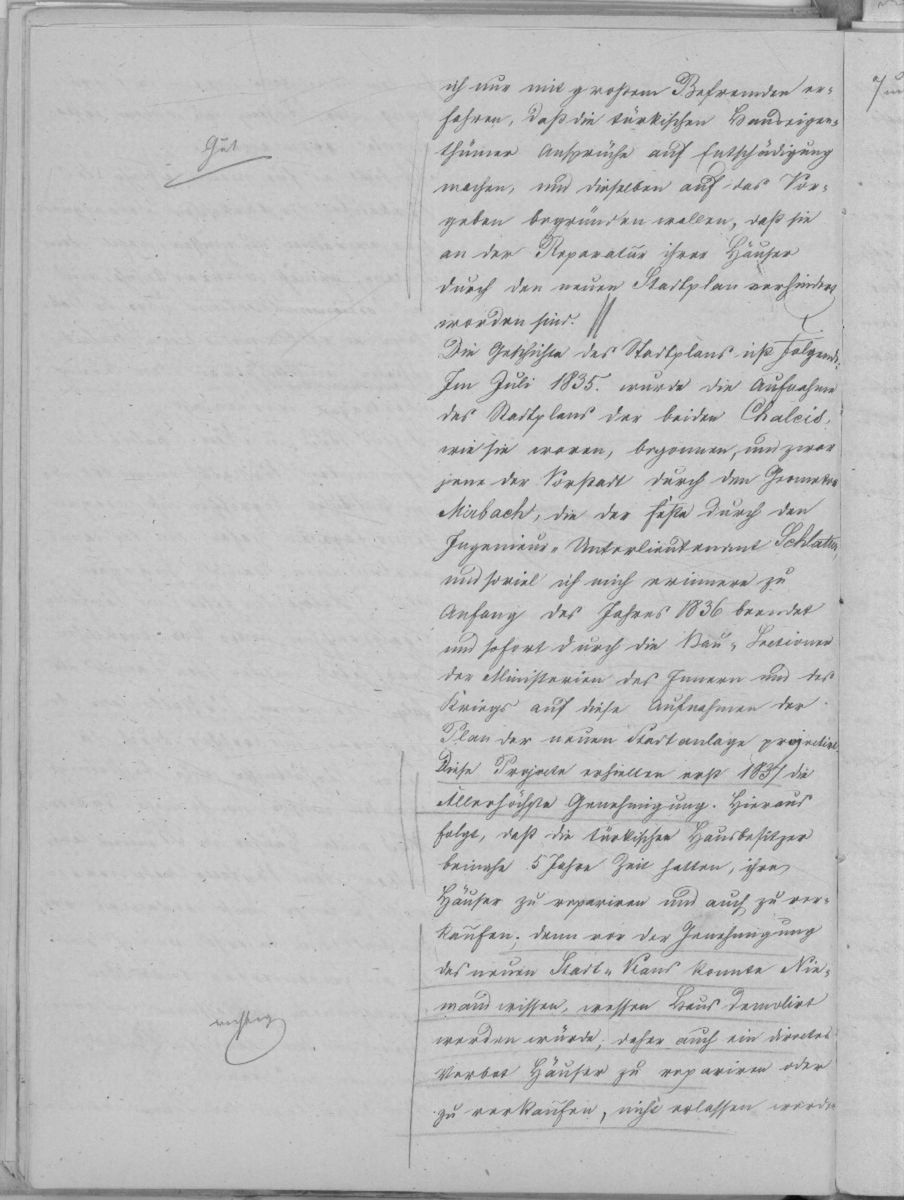 ich nur mit großem Befremden er-
fahren, daß die türkischen Hauseigen-
Gut
thümer Ansprüche auf Entschädigung
machen, und dieselben auf das Vor-
geben begründen wollen, daß sie
an der Reparatur ihrer Häuser
durch den neuen Stadtplan verhindert
worden sind.
Die Geschichte des Stadtplans ist folgende.
Im Juli 1835. wurde die Aufnahme
des Stadtplans der beiden Chalcis,
wie sie waren, begonnen, und zwar
jene der Vorstadt durch den Geometer
Mirbach, die der Feste durch den
Ingenieur-Unterlieutenant
und soviel ich mich erinnere zu
Anfang des Jahres 1836 beendet
und sofort durch die Bau-Sectionen
der Ministerien des Innern und des
Kriegs auf diese Aufnahmen der
Plan der neuen Stadtanlage projectirt.
Diese Projecte erhielten erst 1837 die
Allerhöchste Genehmigung. Hieraus
folgt, daß die türkischen Hausbesitzer
beinahe 5 Jahre Zeit hatten, ihre
Häuser zu repariren und auch zu ver-
kaufen, denn vor der Genehmigung
des neuen Stadt-Plans konnte Nie-
mand wissen, wessen Haus demolirt
richtig
werden würde, daher auch ein directes
Verbot Häuser zu repariren oder
zu verkaufen, nicht erlassen worden